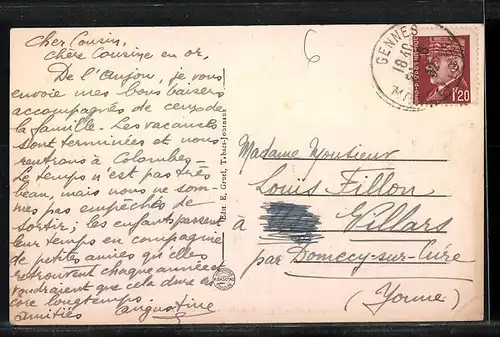 Cher Cousin,
Chère Cousine en or,
De l'Anjou, je vous
envoie mes bons baisers
accompagnés de ceux de
la famille. Les vacances
sont terminées et nous
rentrons à Colombes.
Le temps n'est pas très
beau, mais nous ne som-
mes pas empêchés de
sortir; les enfants passent
leur temps en compagnie
de petites amies qu'elles
retrouvent chaque année et
voudraient que cela dure en-
core longtemps.
amitiés Augustine
Edit. E. Gruel, Tabacs-Journaux
6
GENNES
18 40
1F20
Madame Monsieur
Louis Fillon
à Villars
par Domecy-sur-Cure
(Yonne)